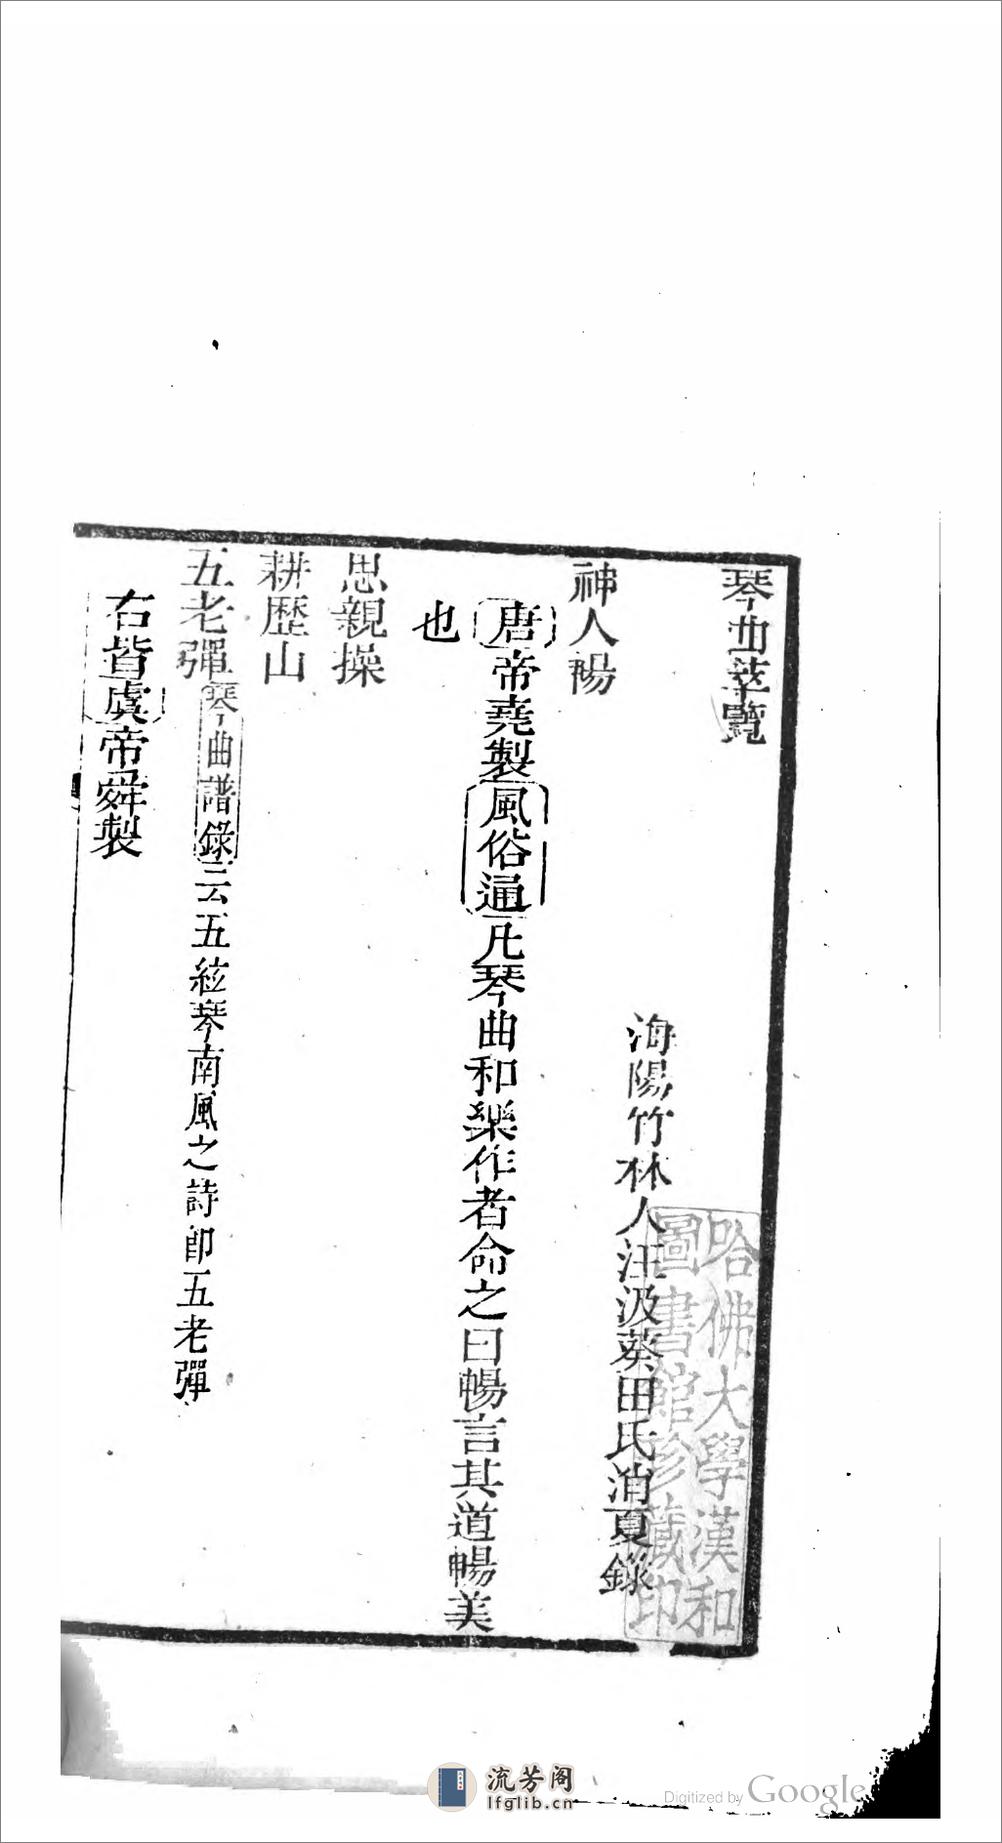 琴曲萃覽
海陽竹林人汪汲葵田氏消夏錄
神人暢
唐帝堯製風俗通凡琴曲和樂作者命之曰暢言其道暢美
也
思親操
耕歷山
五老彈琴曲譜錄云五絃琴南風之詩卽五老彈
右皆虞帝舜製
哈佛大學漢和
圖書館珍藏印
流芳阁
lfglib.cn
Digitized by Google